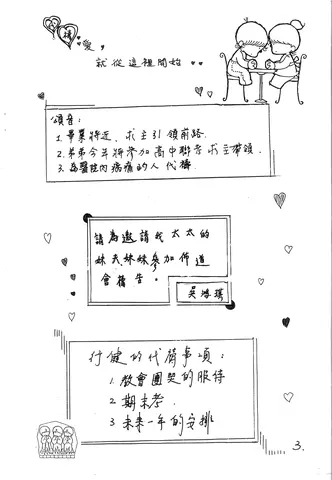 愛,
就從這裡開始..
頌音:
1.畢業將近,求主引領前路.
2.弟弟今年將參加高中聯考求主帶領.
3.為醫院內病痛的人代禱.
請為邀請我太太的
妹夫妹妹參加佈道
會禱告。
吳鴻
行健的代禱事項:
1.教會團契的服侍
2.期末考.
3.未來一年的安排
3.